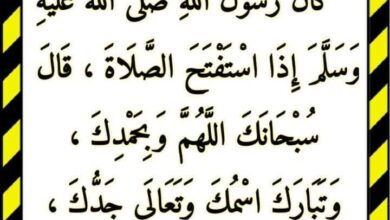 كَانَ رَسُولُ اللهِ صَلَّى اللهُ عَلَيْهِ
وَسَلَّمَ إِذَا اسْتَفْتَحَ الصَّلَاةَ ، قَالَ
سُبْحَانَكَ اللَّهُمَّ وَبِحَمْدِكَ ،
وَتَبَارَكَ اسْمُكَ وَتَعَالَى جَدُّكَ ،